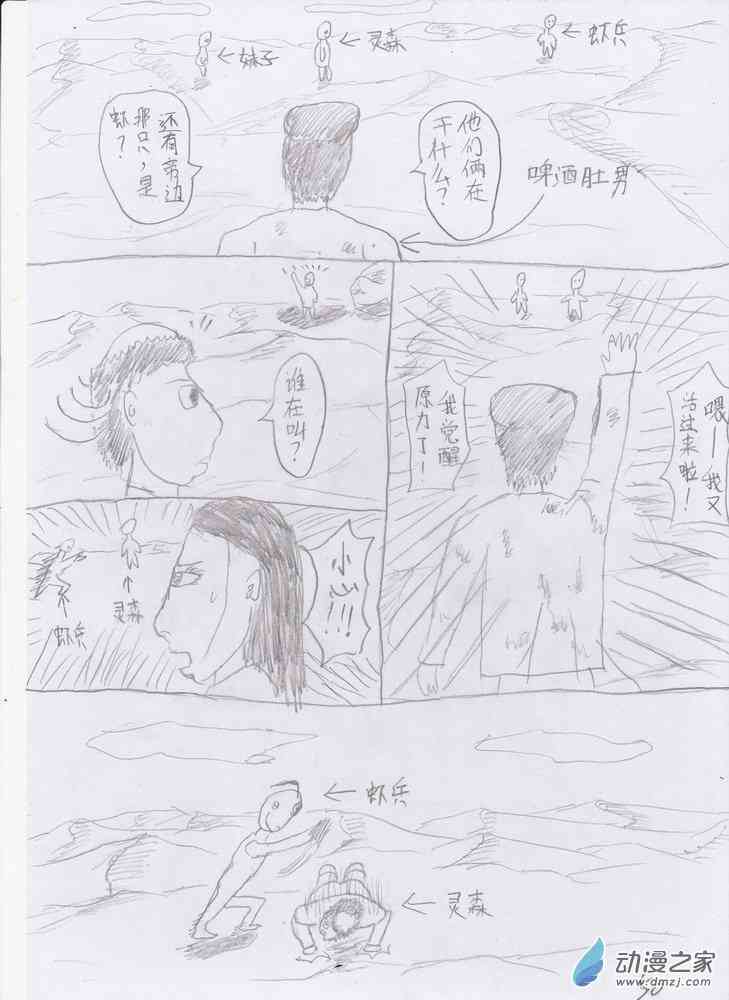 妹子
灵森
虾兵
他们俩在
干什么？
啤酒肚男
还有旁边
那只，是
虾？
喂—我又
活过来啦！
我觉醒
原力了—
谁在叫？
小心!!!
灵森
虾兵
虾兵
灵森
动漫之家
www.dmzj.com
50